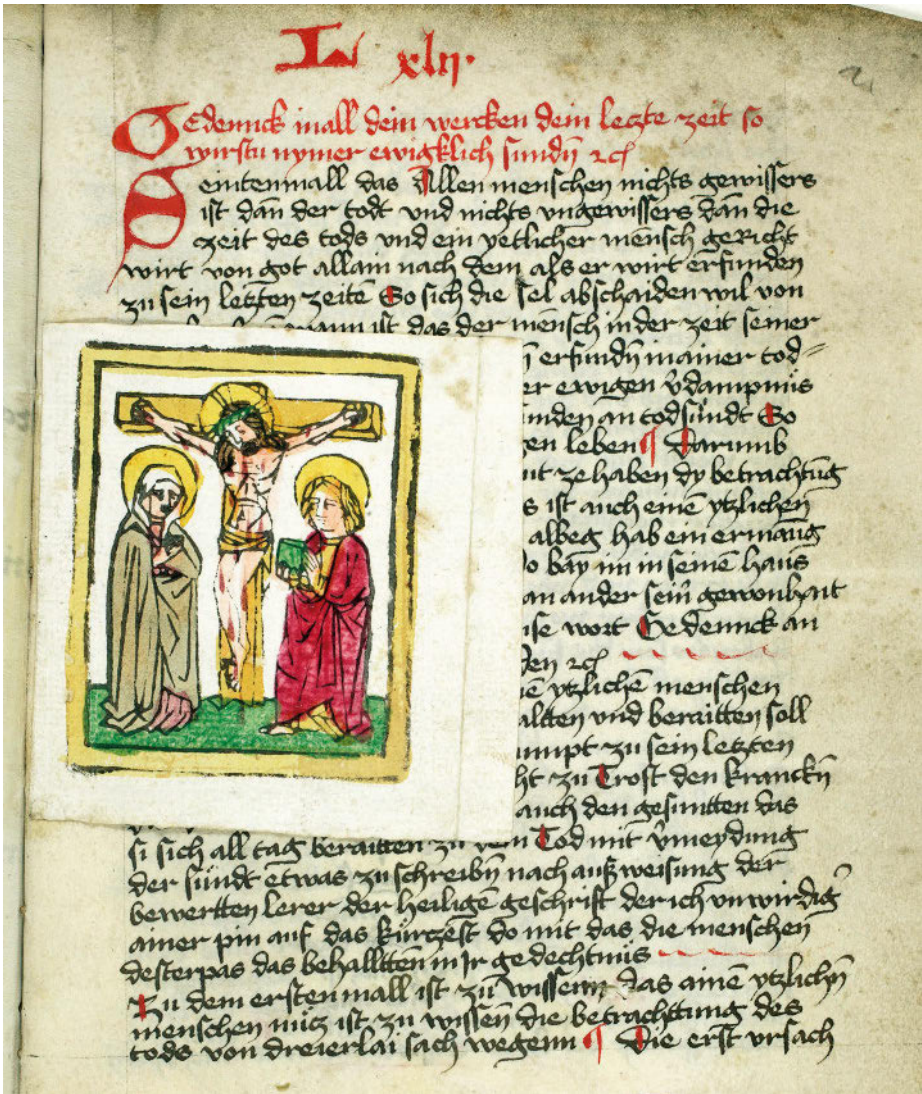 L xlij.
2
GEdennck inall dein wercken dein leczte zeit so
wirstu nymer ewigklich sundn̄ ꝛcꝭ
Seintenmall das Allen menschen nichts gewissers
ist dan̄ der todt vnd nichts vngewissers dan̄ die
zeit des tods vnd ein yetlicher mēnsch gericht
wirt von got allain nach dem als er wirt erfunden
zu sein letzten zeitē So sich die sel abschaiden wil von
ist das der mēnsch in der zeit seiner
erfundn̄ in ainer tod⸗
er ewigen v̄dampnüs
nden an todsündt So
en leben ¶ Darumb
nt ze haben dy betrachtūg
s ist auch einē ytzlichen
albeg hab ein ermāūg
o bay im in seinē haus
an ander sein̄ gewonhait
ise wort Gedennck an
den ꝛcꝭ
ē ytzlichē menschen
altten vnd beraitten soll
umpt zu sein letzten
ht zu Trost den kranckn̄
auch den gesuntten das
si sich all tag beraitten zu dem Tod mit v̄meydung
der sündt etwas zu schreibn̄ nach außweisung der
bewertten lerer der heiligē geschrift der ich vnwirdiḡ
ainer pin auf das kürczest do mit das die menschen
desterpas das behalltten in Ir gedechtnüs
Zu dem ersten mall ist zu wissenn das ainē ytzlichn̄
menschen nücz ist zu wissen̄ die betrachttung des
tods von dreierlai sach wegenn ¶ Die erst vrsach